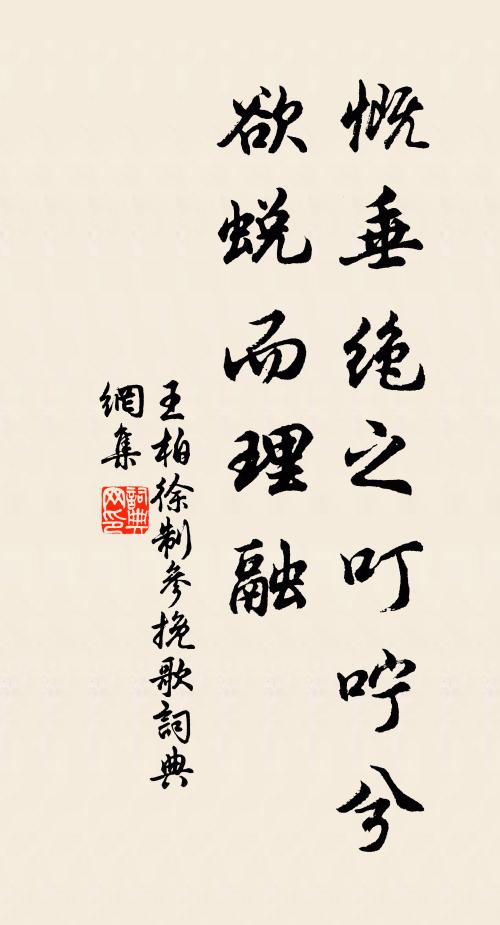 慨垂绝之叮咛兮
欲蜕而理融
王柏徐制參挽歌詞典
網集
詞典
网印